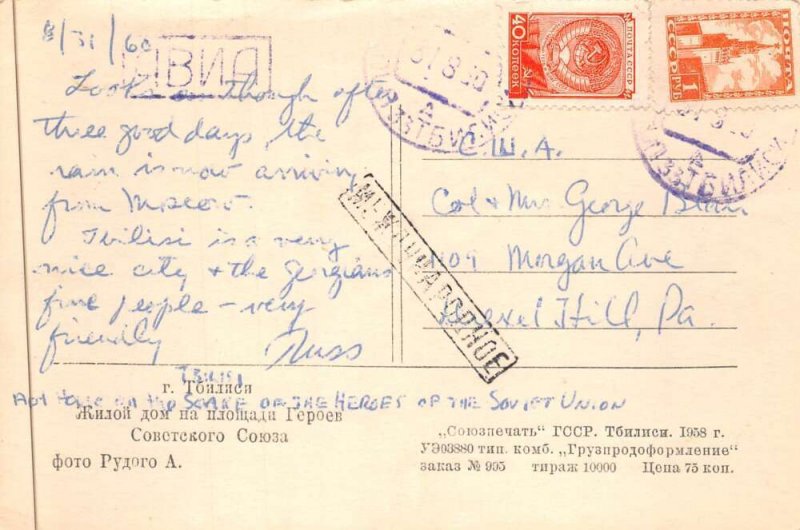 8/31/60
АВИА
Looks as though after
three good days, the
rain is now arriving
from Moscow.
Tbilisi is a very
nice city & the Georgians
fine people - very
friendly
Russ
40 КОПЕЕК
ПОЧТА СССР
ПОЧТА
СССР
1 РУБ
31 8 60
ТБИЛИСИ
31 8
ТБИЛИСИ
МЕЖДУНАРОДНОЕ
С.Ш.А.
Col & Mrs George Blair
Morgan Ave
Drexel Hill, Pa.
TBILISI
г. Тбилиси
APT HOUSE ON THE SQUARE OF THE HEROES OF THE SOVIET UNION
Жилой дом на площади Героев
Советского Союза
фото Рудого А.
„Союзпечать" ГССР. Тбилиси. 1958 г.
УЭ03880 тип. комб. „Грузпродоформление"
заказ № 995 тираж 10000 Цена 75 коп.